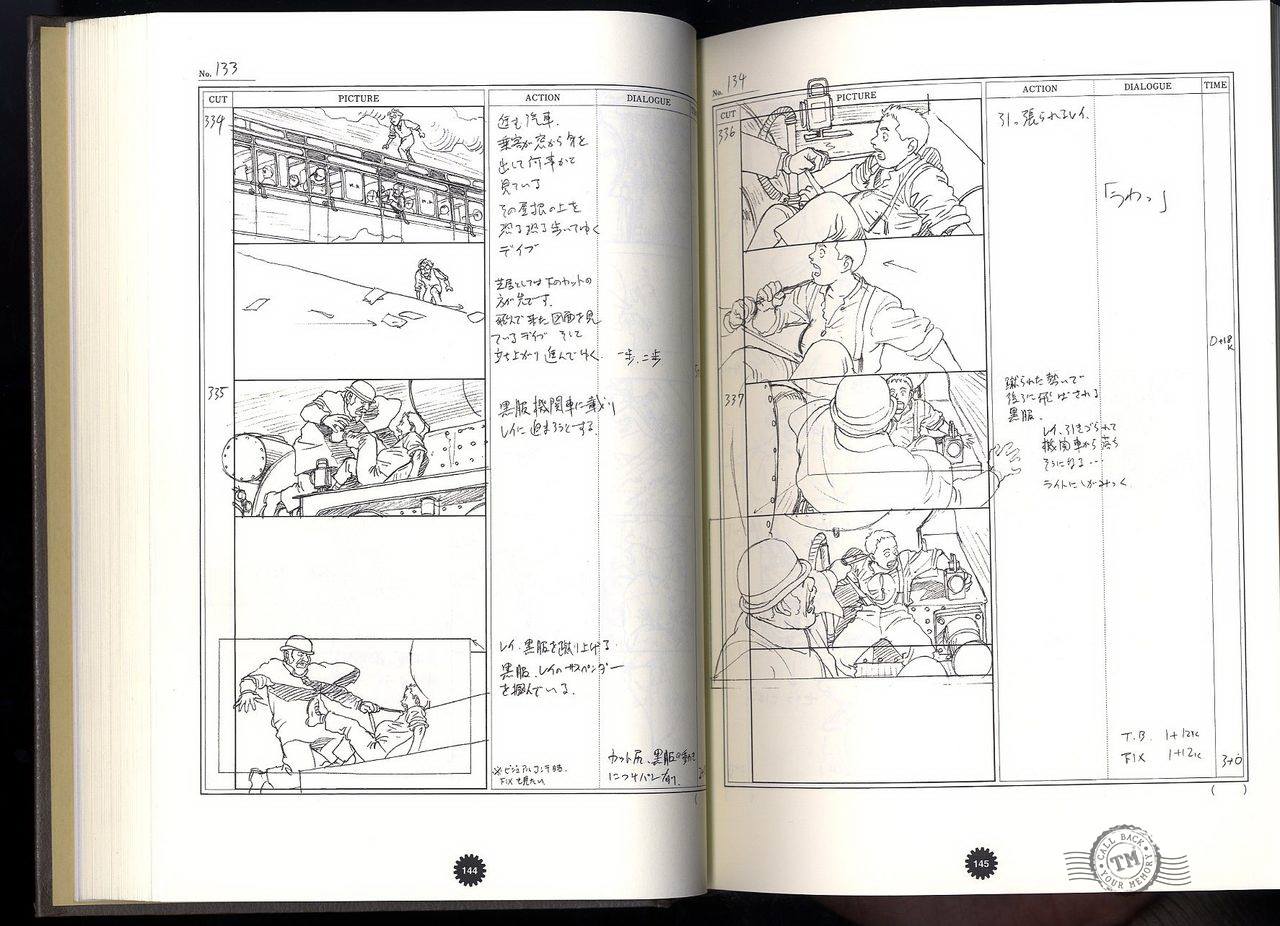 No. 133
CUT
PICTURE
ACTION
DIALOGUE
334
進む汽車.
乗客が窓から身を
出して何事かと
見ている
その屋根の上を
恐る恐る歩いてゆく
デイブ
芝居としては下のカットの
方が先です.
飛んで来た図面を見
ているデイブ そして
立ち上がり進んでゆく. 一歩、二歩
335
黒服機関車に載り
レイに迫まろうとする.
レイ.黒服を蹴り上げる.
黒服.レイのサスペンダー
を掴んでいる.
FIXで見たい
カット尻.黒服の動きに
144
No. 134
CUT
PICTURE
ACTION
DIALOGUE
TIME
336
引っ張られるレイ.
「うわっ」
0+18K
337
蹴られた勢いで
後ろに飛ばされる
黒服.
レイ.引きづられて
機関車から落ち
そうになる…
ライトにしがみつく.
T.B. 1+12K
FIX 1+12K
3+0
( )
145
CALL BACK
TM
YOUR MEMORY